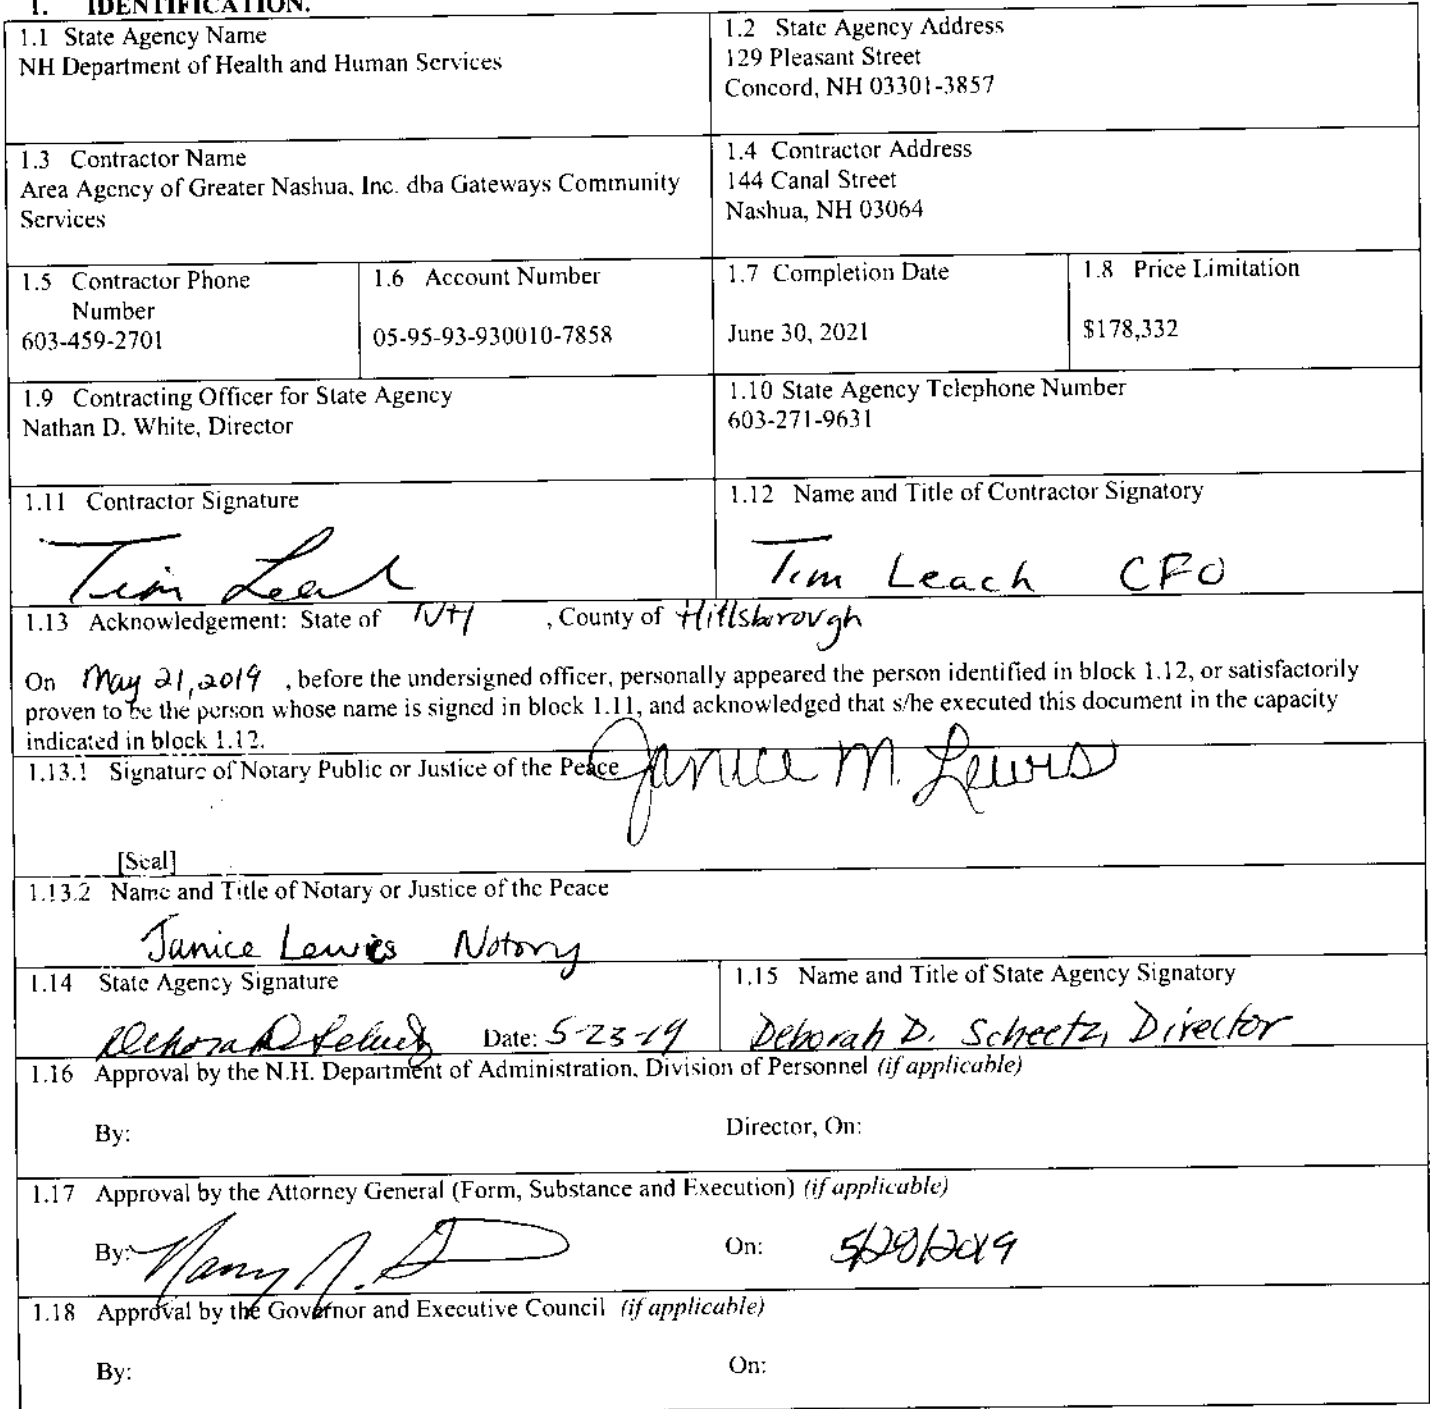 1. IDENTIFICATION.
1.1 State Agency Name
NH Department of Health and Human Services
1.2 State Agency Address
129 Pleasant Street
Concord, NH 03301-3857
1.3 Contractor Name
Area Agency of Greater Nashua, Inc. dba Gateways Community
Services
1.4 Contractor Address
144 Canal Street
Nashua, NH 03064
1.5 Contractor Phone
Number
603-459-2701
1.6 Account Number
05-95-93-930010-7858
1.7 Completion Date
June 30, 2021
1.8 Price Limitation
$178,332
1.9 Contracting Officer for State Agency
Nathan D. White, Director
1.10 State Agency Telephone Number
603-271-9631
1.11 Contractor Signature
Tim Leach
1.12 Name and Title of Contractor Signatory
Tim Leach CFO
1.13 Acknowledgement: State of NH , County of Hillsborough
On May 21, 2019 , before the undersigned officer, personally appeared the person identified in block 1.12, or satisfactorily
proven to be the person whose name is signed in block 1.11, and acknowledged that s/he executed this document in the capacity
indicated in block 1.12.
1.13.1 Signature of Notary Public or Justice of the Peace Janice M. Lewis
[Seal]
1.13.2 Name and Title of Notary or Justice of the Peace
Janice Lewis Notary
1.14 State Agency Signature
Date: 5-23-19
1.15 Name and Title of State Agency Signatory
Deborah D. Scheetz, Director
1.16 Approval by the N.H. Department of Administration, Division of Personnel (if applicable)
By: Director, On:
1.17 Approval by the Attorney General (Form, Substance and Execution) (if applicable)
By: On: 5/28/2019
1.18 Approval by the Governor and Executive Council (if applicable)
By: On: